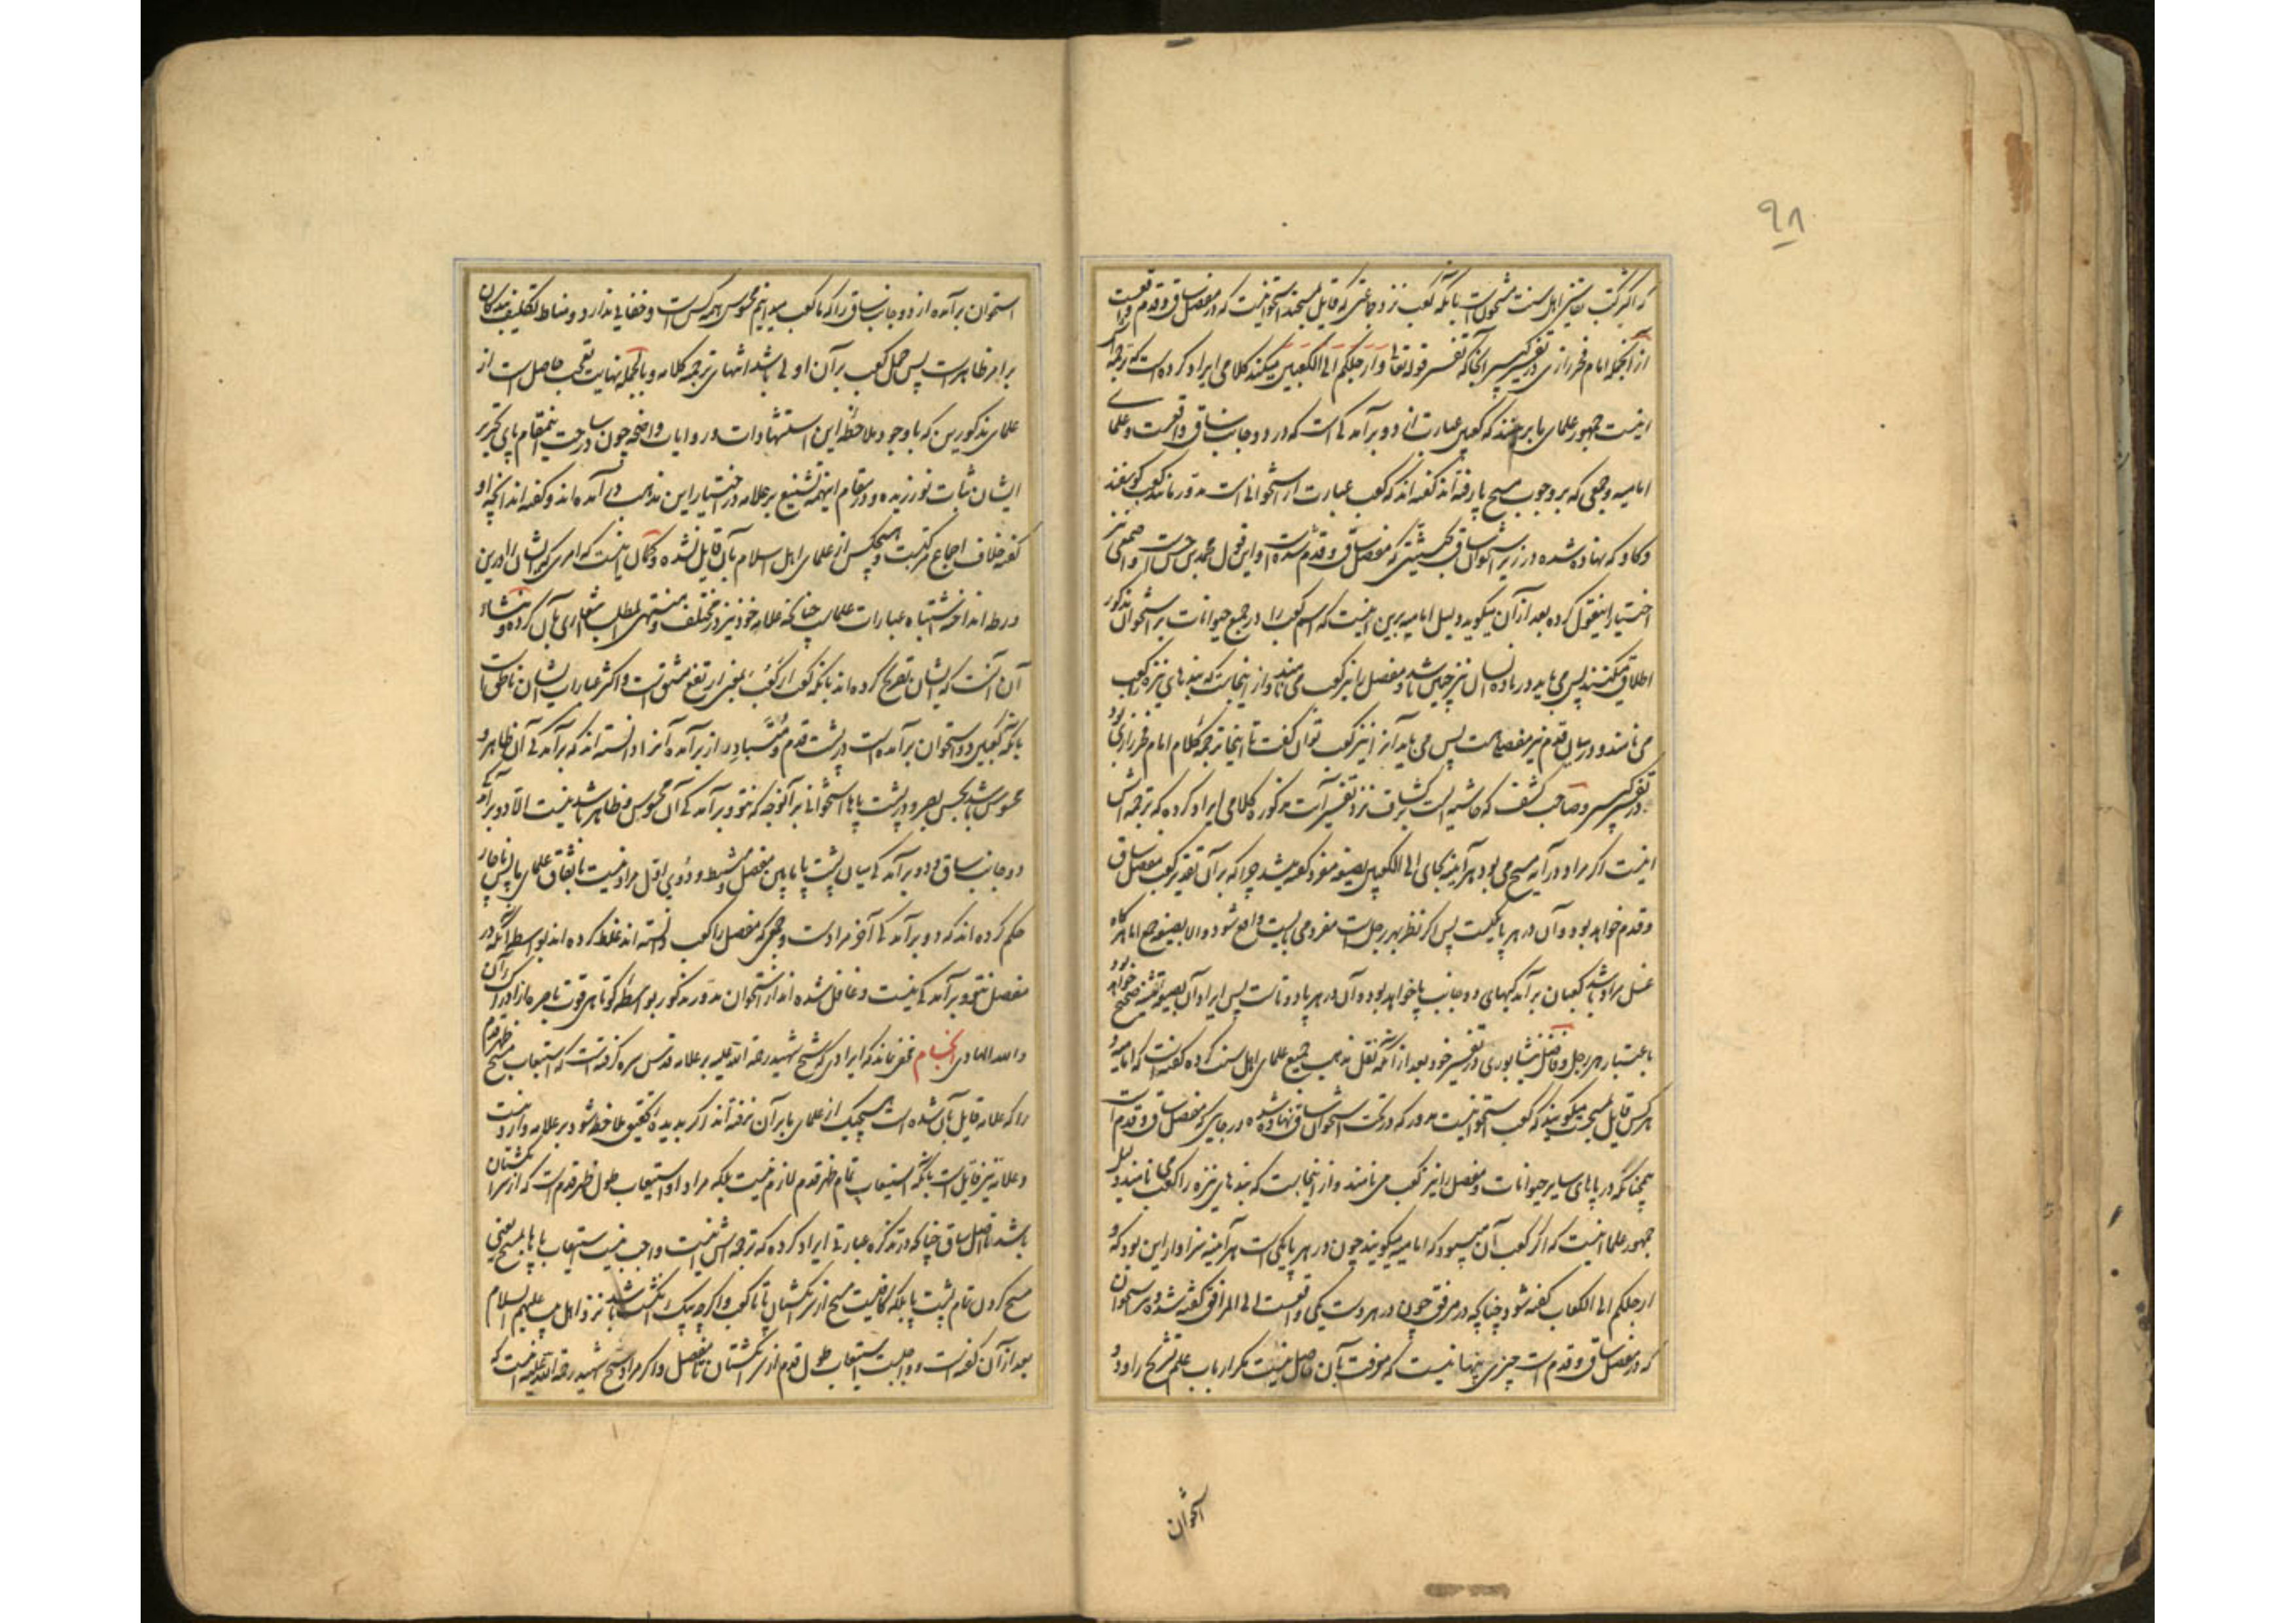 ۹۸
که اکثر کتب تفاسیر اهل سنت مشحونست بآنکه کعب نزد جماعتی که قایل بمسحند استخوانیست که در مفصل ساق و قدم واقعست
از آنجمله امام فخر رازی در تفسیر کبیر آنجا که تفسیر قوله تعالی و ارجلکم الی الکعبین میکند کلامی ایراد کرده است که ترجمه آن
اینست جمهور علمای ما برینند که کعبین عبارت از دو برآمدگی است که در دو جانب ساق واقعست و علمای
امامیه و جمعی که بر وجوب مسح پا رفته اند گفته اند که کعب عبارت از استخوانی است مدور مانند کعب گوسفند
و گاو که نهاده شده در زیر استخوان ساق بحیثیتی که مفصل ساق و قدم شده است و این قول محمد بن حسن است و اصمعی نیز
اختیار اینقول کرده بعد از آن میگوید دلیل امامیه برین اینست که اسم کعب را در جمیع حیوانات بر استخوان مذکور
اطلاق میکنند پس می باید در ماده انسان نیز چنین باشد و مفصل را نیز کعب می نامند و از اینجاست که بندهای نیزه را کعب
می نامند و در میان قدم نیز مفصلی هست پس می باید آنرا نیز کعب توان گفت تا اینجا ترجمه کلام امام فخر رازی بود
در تفسیر کبیر و صاحب کشف که حاشیه ایست بر کشاف نزد تفسیر آیت مذکوره کلامی ایراد کرده که ترجمه اش
اینست اگر مراد در آیه مسح می بود هر آینه بجای الی الکعبین بصیغه مفرد گفته میشد چرا که بر آن تقدیر کعب مفصل ساق
و قدم خواهد بود و آن در هر پا یکیست پس اگر نظر بهر رجل است مفرد می بایست واقع شود و الا بصیغه جمع اما هر گاه
غسل مراد باشد کعبان برآمدگیهای دو جانب پا خواهد بود و آن در هر پا دوتاست پس ایراد آن بصیغه تثنیه صحیح خواهد بود
باعتبار هر رجل و فاضل نیشابوری در تفسیر خود بعد از آنکه نقل مذهب جمیع علمای اهل سنت کرده گفته است که امامیه و
هر کس قایل بمسحست میگویند که کعب استخوانیست مدور که در تحت استخوان ساق نهاده شده در جایی که مفصل ساق و قدم است
همچنانکه در پاهای سایر حیوانات و مفصل را نیز کعب می نامند و از اینجاست که بندهای نیزه را کعب می نامند و دلیل
جمهور علما اینست که اگر کعب آن میبود که امامیه میگویند چون در هر پا یکی است هر آینه سزاوار این بود که و
ارجلکم الی الکعاب گفته شود چنانچه در مرفق چون در هر دست یکی واقعست الی المرافق گفته شده و استخوان
که در مفصل ساق و قدم است چیزی پنهانیست که معرفت بآن حاصل نیست مگر ارباب علم تشریح را و دو
استخوان
استخوان برآمده از دو جانب ساق را که ما کعب میدانیم محسوس همه کس است و خفایی ندارد و مناط تکلیف بندگان
بر امر ظاهر است پس حمل کعب بر آن اولی باشد انتهای ترجمه کلامه و بالجمله نهایت تعجب حاصل است از
علمای مذکورین که با وجود ملاحظه این استشهادات و روایات واضحه چون ساحت اینمقام پای تحریر
ایشان ثبات نورزیده و در مقام اینهمه تشنیع بر علامه در اختیار این مذهب در آمده اند و گفته اند آنچه او
گفته خلاف اجماع مرکبست و هیچکس از علمای اهل اسلام بآن قایل نشده و گمان اینست که امری که ایشان را درین
ورطه انداخته اشتباه عبارات علماست چنانچه علامه خود نیز در مختلف و منتهی المطلب اشعاری بآن کرده و منشاء
آن آنست که ایشان تصریح کرده اند بآنکه کعب از کَعَبَ بمعنی ارتفع مشتق است و اکثر عبارات ایشان ناطقست
بآنکه کعبین دو استخوان برآمده است در پشت قدم و متبادر از برآمده آنرا دانسته اند که برآمدگی آن ظاهر و
محسوس باشد بحس بصر و در پشت پاها استخوانی بر آنوجه که نتو و برآمدگی آن محسوس و ظاهر باشد نیست الا دو برآمدگی
دو جانب ساق و دو برآمدگی میان پشت پا مابین مفصل و مشط و دوی اول مراد نیست باتفاق علمای ما پس ناچار
حکم کرده اند که دو برآمدگی آخر مرادست و جمعی که مفصل را کعب دانسته اند غلط کرده اند بواسطه آنکه در
مفصل نتو و برآمدگی نیست و غافل شده اند از استخوان مدور مذکور بواسطه کوتاهی قوت باصره ما از ادراک آن
والله الهادی انجام مخفی نماند که ایرادی که شیخ شهید رحمة الله علیه بر علامه قدس سره گرفته است که استیعاب مسح ظهر قدم
را که علامه قایل بآن شده است هیچیک از علمای ما بر آن نرفته اند اگر بدیده تحقیق ملاحظه شود بر علامه وارد نیست
و علامه نیز قایل است بآنکه استیعاب تمام ظهر قدم لازم نیست بلکه مراد او استیعاب طول ظهر قدم است که از سر انگشتان
باشد تا اصل ساق چنانچه در تذکره عبارتی ایراد کرده که ترجمه اش اینست واجب نیست استیعاب پاها بمسح یعنی
مسح کردن تمام پشت پا بلکه کافیست مسح از سر انگشتان پا تا کعب و اگر چه بیک انگشت باشد نزد اهل بیت علیهم السلام
بعد از آن گفته است و واجبست استیعاب طول قدم از سر انگشتان تا مفصل و اگر مراد شیخ شهید رحمة الله علیه اینست که